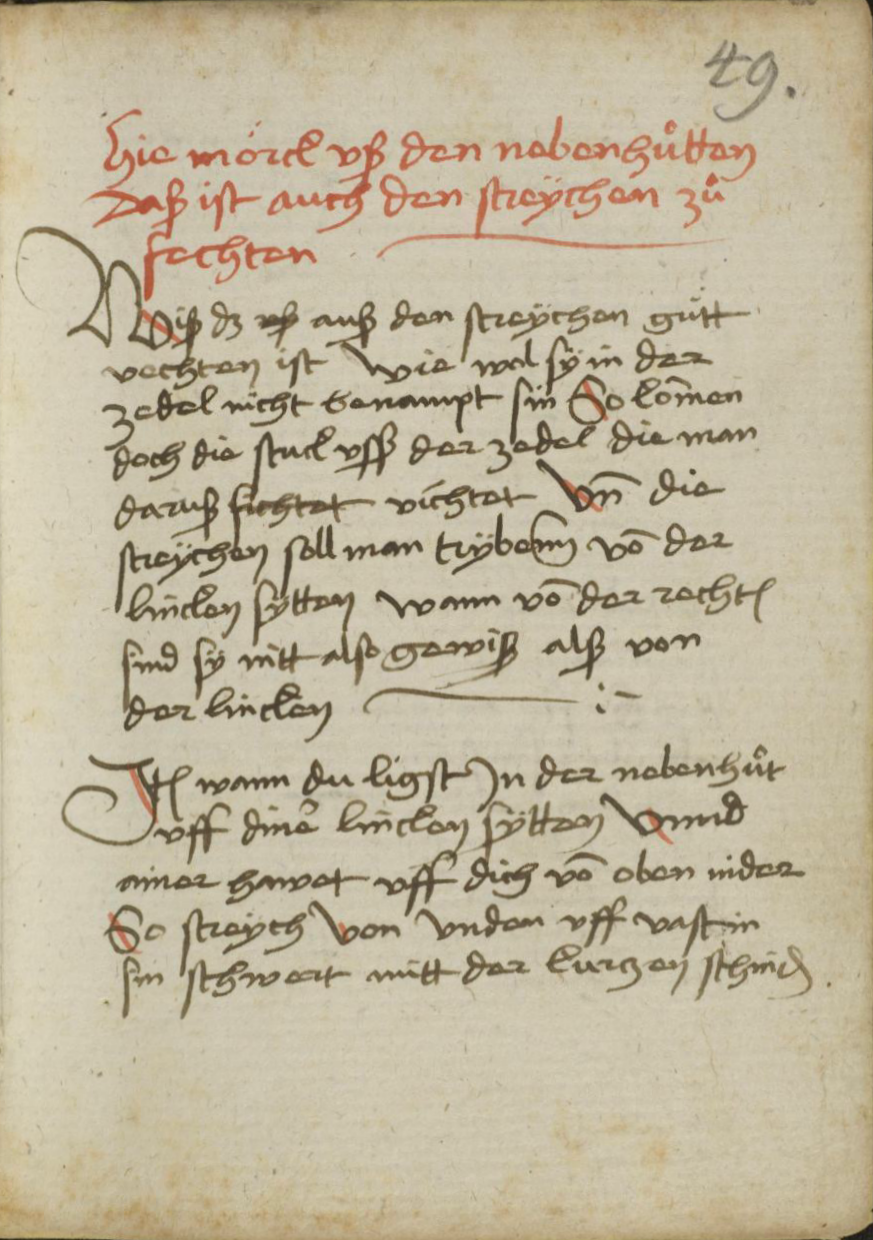 49.
Hie mörck vß den nebenhůtten
Daß ist auch den streÿchen zů
fechten
Wiß dz vß auß den streÿchen gůtt
vechten ist Wie wol sÿ in der
zedel nicht benampt sin So kom̄en
doch die stuck vsß der zedel die man
daruß fichtet vichtet Vn̄ die
streÿchen soll man trÿbenn vō der
lincken sÿtten wann vō der recht
sind sÿ nitt also gewiß alß von
der lincken
Jt wann du ligst Jn der nebenhůt
vff diner lincken sÿtten Vnnd
ainer hawet vff dich vō oben nider
So streÿch Von Vnden vff vast in
sin schwert mitt der kurczen schnid